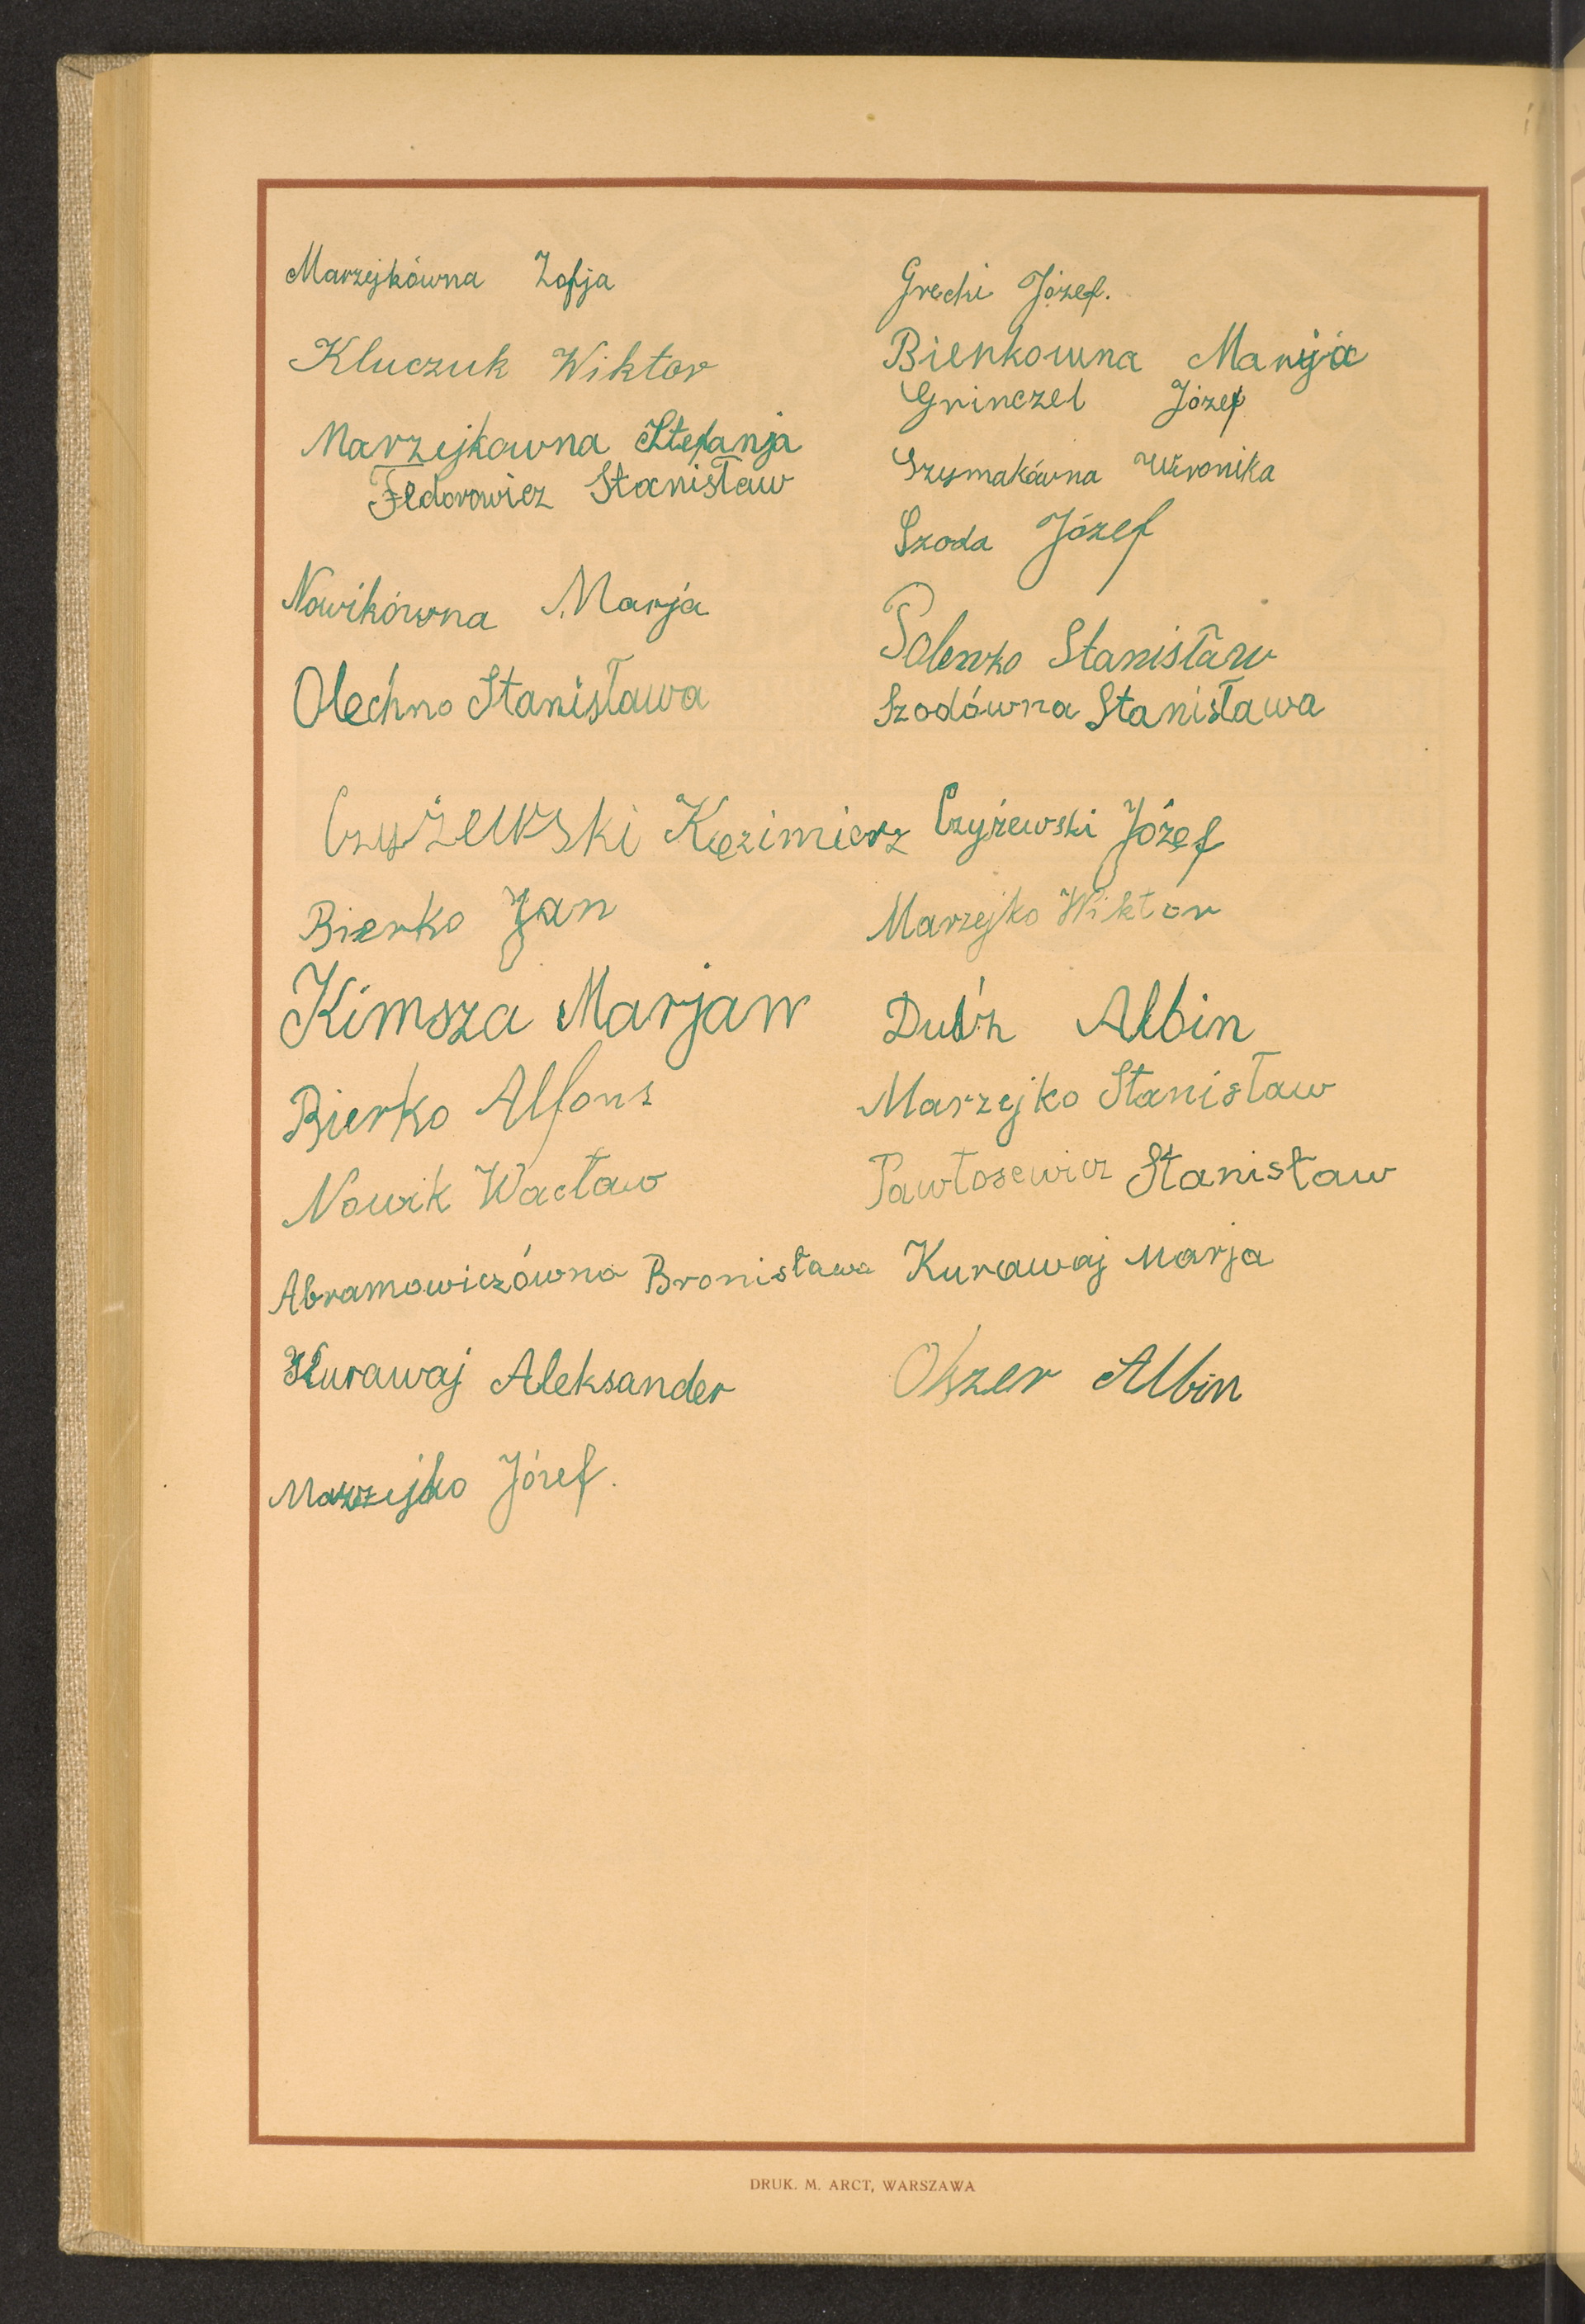 Marzejkówna Zofja
Kluczuk Wiktor
Marzejkowna Stefanja
Fedorowicz Stanisław
Nowikówna Marja
Olechno Stanisława
Czyżewski Kazimierz
Bierko Jan
Kimsza Marjan
Bierko Alfons
Nowik Wacław
Abramowiczówna Bronisława
Kurawaj Aleksander
Marzejko Józef.
Grecki Józef.
Bienkowna Marija
Grinczel Józef
Szymakówna Weronika
Szoda Józef
Stanisław
Szodówna Stanisława
Czyżewski Józef
Marzejko Wiktor
Albin
Marzejko Stanisław
Pawłosewicz Stanisław
Kurawaj Marja
Albin
DRUK. M. ARCT, WARSZAWA